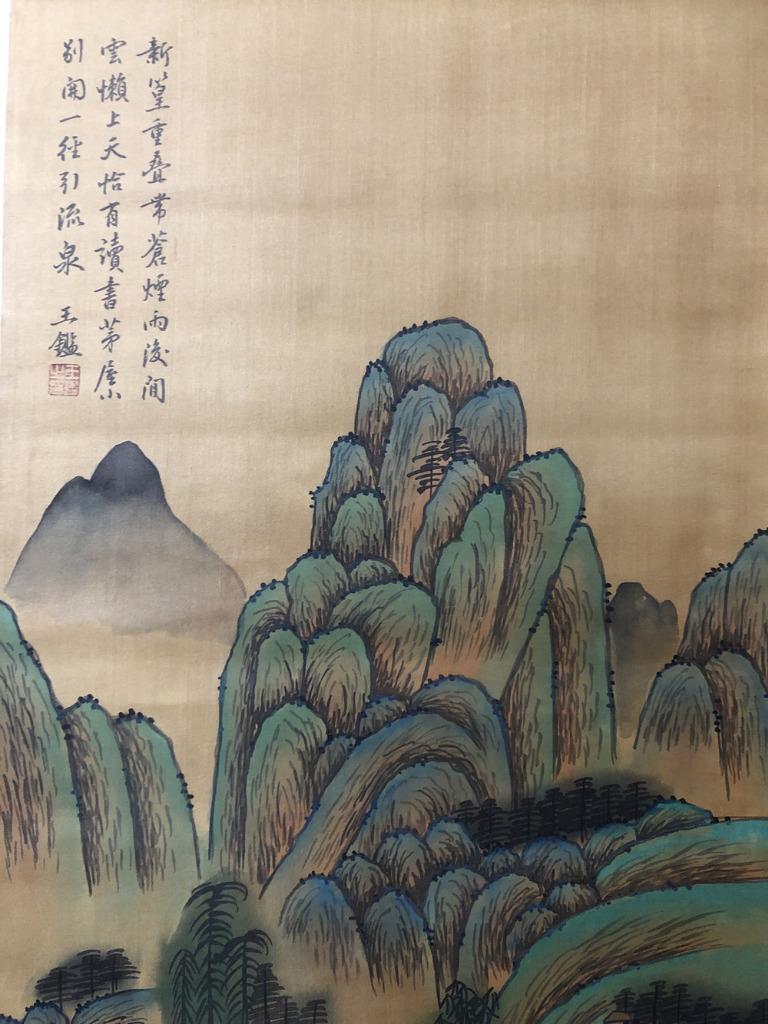 新篁重叠常蒼煙雨後閒
雲懶上天恰有讀書茅屋小
別開一徑引流泉 王鑑